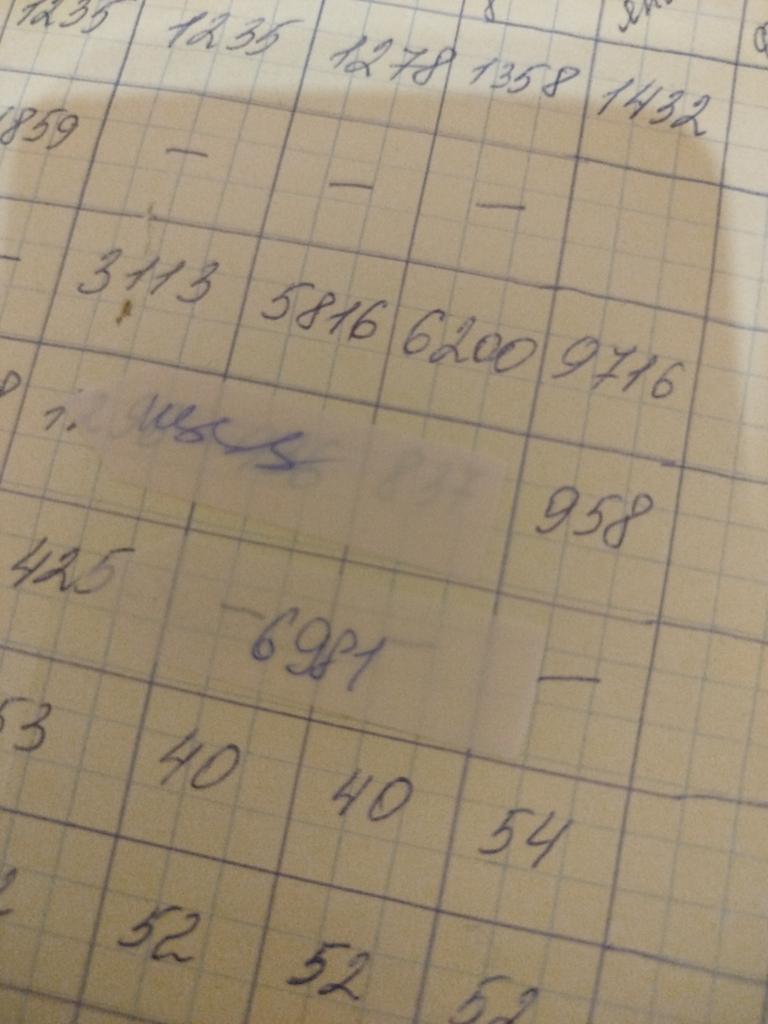 1235 1235 1278 1358 1432
1859 — — —
— 3113 5816 6200 9716
958
425 6981 —
53 40 40 54
52 52 52